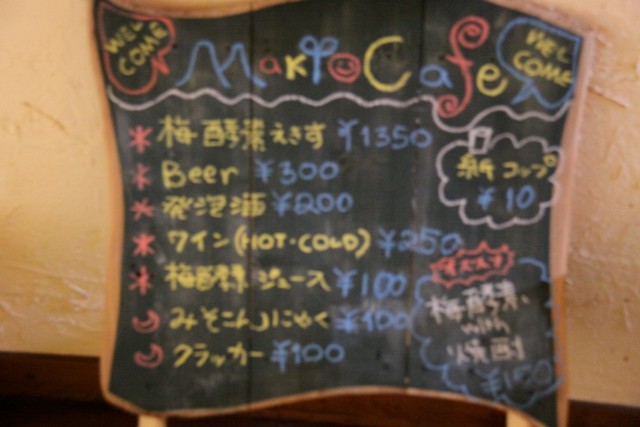 WEL
COME
Makio Cafe
WEL
COME
* 梅酵素えきす ¥1350
* Beer ¥300
* 発泡酒 ¥200
* ワイン(HOT・COLD) ¥250
* 梅酵素ジュース ¥100
みそこんにゃく ¥100
クラッカー ¥100
紙コップ
¥10
オススメ
梅酵素
with
焼酎
¥150